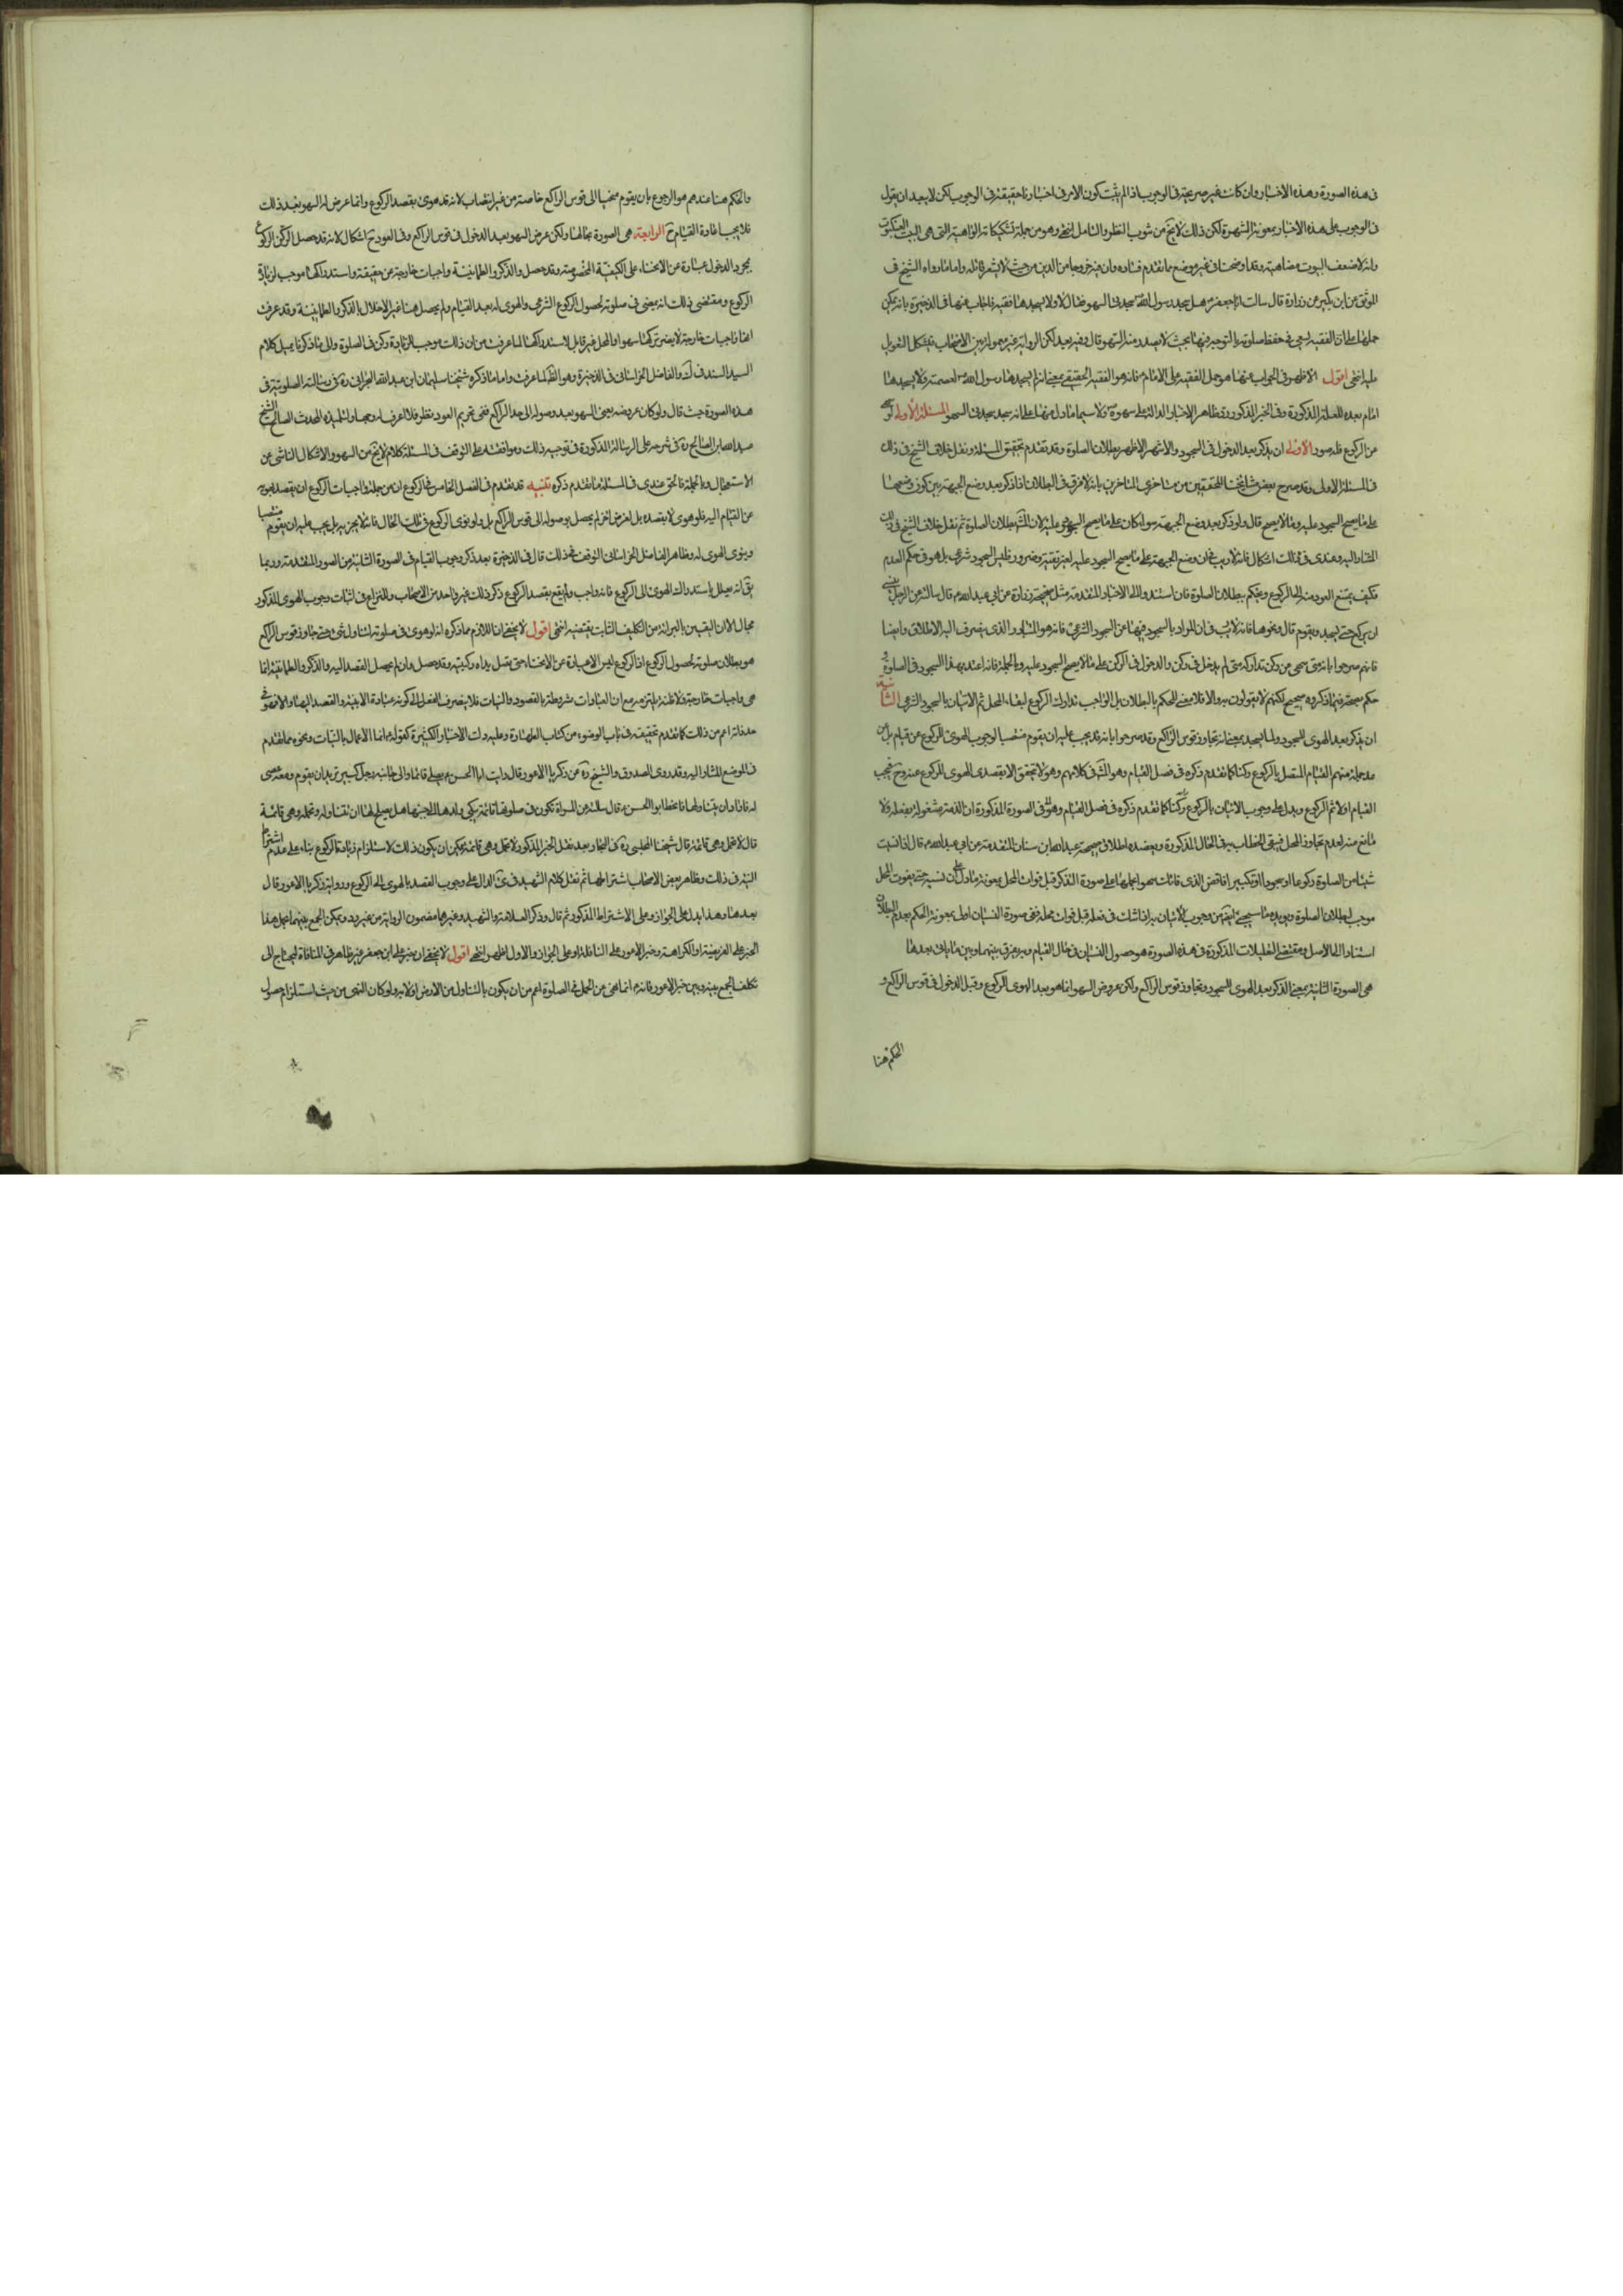 فى هذه الصورة وهذه الاخبار وان كانت غير صريحة فى الوجوب اذا لم يثبت كون الامر فى اخبارنا حقيقة فى الوجوب لكن لا يبعد ان يقول
فى الوجوب على هذه الاخبار بمعونة الشهرة لكن ذلك لا يخ من شوب النظر والتامل انتهى وهو من جملة تشكيكاته الواهية التى هى البيت العنكبوت
وانه لاضعف البيوت مضاهية وقد اوضحنا فى غير موضع ما تقدم فساده وان فيه خروجا من الدين من حيث لا يشعر قائله واما ما رواه الشيخ فى
الموثق عن ابن بكير عن زرارة قال سالت ابا جعفر ع هل سجد رسول الله ص سجدتى السهو فقال لا ولا يسجدها فقيه فاجاب عنها فى الذخيرة بانه يمكن
حملها على ان الفقيه يسعى فى حفظ صلوته بالتوجه فيها بحيث لا يصدر منه السهو قال وفيه بعد لكن الرواية غير معمول بين الاصحاب فيشكل التعويل
عليه انتهى اقول الاظهر فى الجواب عنها هو حمل الفقيه على الامام ع فانه هو الفقيه الحقيقى بمعنى انه لم يسجدها رسول الله ص لعصمته ولا يسجدها
امام بعده للعلة المذكورة وفى الخبر المذكور رد ظاهر الاخبار الدالة على سهوه ص ولا سيما ما دل منها على انه سجد سجدتى السهو المسئلة الاولى لو سهى
عن الركوع فله صور الاولى ان يذكر بعد الدخول فى السجود والاشهر الاظهر بطلان الصلوة وقد تقدم تحقيق المسئلة ونقل خلاف الشيخ فى ذلك
فى المسئلة الاولى وقد صرح بعض مشايخنا المحققين من متاخرى المتاخرين بانه لا فرق فى البطلان اذا ذكر بعد وضع الجبهة بين كون وضعها
على ما يصح السجود عليه وما لا يصح قال ولو ذكر بعد وضع الجبهة سواء كان على ما يصح السجود عليه او لا فالمشهور بطلان الصلوة ثم نقل خلاف الشيخ فى ذلك
المشار اليه وعندى فى ذلك اشكال فانه لا ريب فى ان وضع الجبهة على ما لا يصح السجود عليه لغير تقية وضرورة ليس السجود شرعى بل هو فى حكم العدم
فكيف يمتنع العود منه الى الركوع ويحكم ببطلان الصلوة فان استند الى الاخبار المتقدمة مثل صحيحة رفاعة عن ابى عبد الله ع قال سالته عن الرجل ينسى
ان يركع حتى يسجد ويقوم قال ونحوها فانه لا ريب فى ان المراد بالسجود فيها عن السجود الشرعى فانه هو المتبادر والذى ينصرف اليه الاطلاق وايضا
فانهم صرحوا بانه متى سهى عن ركن تداركه متى لم يدخل فى ركن والدخول فى الركن على ما لا يصح السجود عليه وبالجملة فانه ان اعتد بهذا السجود فى الصلوة و
حكم بصحته فما ذكروه صحيح لكنهم لا يقولون به والا فلا معنى للحكم بالبطلان بل الواجب تدارك الركوع لبقاء المحل ثم الاتيان بالسجود الشرعى الثانية
ان يذكر بعد الهوى للسجود ولما يسجد بمعنى انه تجاوز قوس الراكع وقد صرحوا بانه يجب عليه ان يقوم منتصبا لوجوب الهوى للركوع عن قيام بل عن
القيام المتصل بالركوع ركنا كما تقدم ذكره فى فصل القيام وهو المشهور فى كلامهم وهو لا يتحقق الا بقصد الهوى للركوع عنه وح فيجب
القيام اولا ثم الركوع ويدل على وجوب الاتيان بالركوع
مانع منه لعدم تجاوز المحل فيبقى الخطاب به فى الحال المذكورة ويعضده اطلاق صحيحة عبد الله بن سنان المتقدمة عن ابى عبد الله ع قال اذا نسيت
شيئا من الصلوة ركوعا او سجودا او تكبيرا فاقض الذى فاتك سهوا بحملها على صورة الذكر قبل فوات المحل بمعونة ما دل على ان نسيه حتى يفوت المحل
موجب لبطلان الصلوة ويؤيده ما سيجئ
استنادا الى الاصل ومقتضى التعليلات المذكورة فى هذه الصورة هو حصول النسيان فى حال القيام وبه يفرق بينها وبين ما ياتى بعدها
هى الصورة الثالثة بمعنى الذكر بعد الهوى للسجود وتجاوز قوس الراكع ولكن عروض السهو انما هو بعد الهوى للركوع وقبل الدخول فى قوس الراكع و
الحكم هنا
والحكم هنا عندهم هو الرجوع بان يقوم منحنيا الى قوس الراكع خاصة من غير انتصاب لانه قد هوى بقصد الركوع وانما عرض له السهو بعد ذلك
فلا يجب اعادة القيام ح الرابعة هى الصورة بحالها ولكن عرض السهو بعد الدخول فى قوس الراكع وفى العود ح اشكال لانه قد حصل الركن الركوعى
بمجرد الدخول عبارة عن الانحناء على الكيفية المخصوصة وقد حصل والذكر والطمانينة واجبات خارجة عن حقيقته واستدراكها موجب لزيادة
الركوع ومقتضى ذلك انه يمضى فى صلوته لحصول الركوع الشرعى والهوى له بعد القيام ولم يحصل هنا غير الاخلال بالذكر والطمانينة وقد عرفت
انها واجبات خارجة لا يضر تركها سهوا والمحل غير قابل لاستدراكها لما عرفت من ان ذلك موجب لزيادة ركن فى الصلوة والى ما ذكرنا يميل كلام
السيد السند فى ك والفاضل الخراسانى فى الذخيرة وهو الظ لما عرفت واما ما ذكره شيخنا سليمان ابن عبد الله البحرانى ره فى رسالته الصلوتية فى
هذه الصورة حيث قال ولو كان عروضه يعنى السهو بعد وصوله الى حد الراكع ففى تحريم العود نظر
عبد الله بن صالح ره فى شرحه على الرسالة المذكورة
الاستعجال وبالجملة فالحق عندى فى المسئلة ما تقدم ذكره تنبيه قد تقدم فى الفصل الخامس فى الركوع ان من جملة واجبات الركوع ان يقصد بهويه
عن القيام اليه فلو هوى لا بقصده بل لغرض اخر لم يحصل بوصوله الى قوس الراكع بل ولو نوى الركوع فى تلك الحال فانه لا يجزيه بل يجب عليه ان يقوم منتصبا
وينوى الهوى له وظاهر الفاضل الخراسانى التوقف فى ذلك قال فى الذخيرة بعد ذكر وجوب القيام فى الصورة الثانية من الصور المتقدمة وربما
يق انه يعلل باستدراك الهوى الى الركوع فانه واجب ولم يقع بقصد الركوع ذكر ذلك غير واحد من الاصحاب وللنزاع فى اثبات وجوب الهوى المذكور
مجال الا ان اليقين بالبرائة من التكليف الثابت يقتضيه انتهى اقول لا يخفى ان اللازم مما ذكره انه لو هوى فى صلوته لتناول شئ حتى جاوز قوس الراكع
هو بطلان صلوته لحصول الركوع اذ الركوع ليس الا عبارة عن الانحناء حتى تصل يداه ركبتيه وقد حصل وان لم يحصل القصد اليه والذكر والطمانينة انما
هى واجبات خارجة ولا اظنه يلتزمه مع ان العبادات مشروطة بالقصود والنيات فلا ينصرف الفعل الى كونه عبادة الا بنية والقصد اليها
كما تقدم تحقيقه فى باب الوضوء من كتاب الطهارة وعليه دلت الاخبار الكثيرة كقوله ع انما الاعمال بالنيات ونحوه مما تقدم
فى الموضع المشار اليه وقد روى الصدوق والشيخ ره عن زكريا الاعور قال رايت ابا الحسن ع يصلى قائما والى جانبه رجل كبير يريد ان يقوم ومعه عصى
له فاراد ان يتناولها فانحط ابو الحسن ع
قال لا تحمل وهى قائمة قال شيخنا المجلسى ره فى البحار بعد نقل الخبر المذكور لا تحمل وهى قائمة يمكن ان يكون ذلك لاستلزام زيادة الركوع بناء على عدم اشتراط
النية فى ذلك وظاهر بعض الاصحاب اشتراطها ثم نقل كلام الشهيد فى الدال على وجوب القصد بالهوى الى الركوع ورواية زكريا الاعور قال
بعدها وهذا يدل على الجواز وعلى الاشتراط المذكور ثم قال وذكر العلامة والشهيد وغيرهما مضمون الرواية من غير رد ويمكن الجمع بينهما بحمل هذا
الخبر على الفريضة او الكراهة وخبر الاعور على النافلة او على الجواز والاول اظهر انتهى اقول لا يخفى ان خبر على ابن جعفر غير ظاهر فى المنافاة ليحتاج الى
تكلف الجمع بينه وبين خبر الاعور فانه انما نهى عن الحمل فى الصلوة اعم من ان يكون بالتناول من الارض او لا ولو كان النهى من حيث استلزام حصول